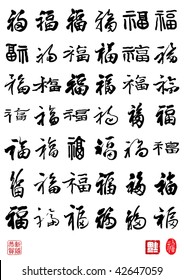 福福福福福福
福福福福福福
福福福福福福
福福福福福福
福福福福福福
福福福福福福
福福福福福福
www.shutterstock.com · 42647059